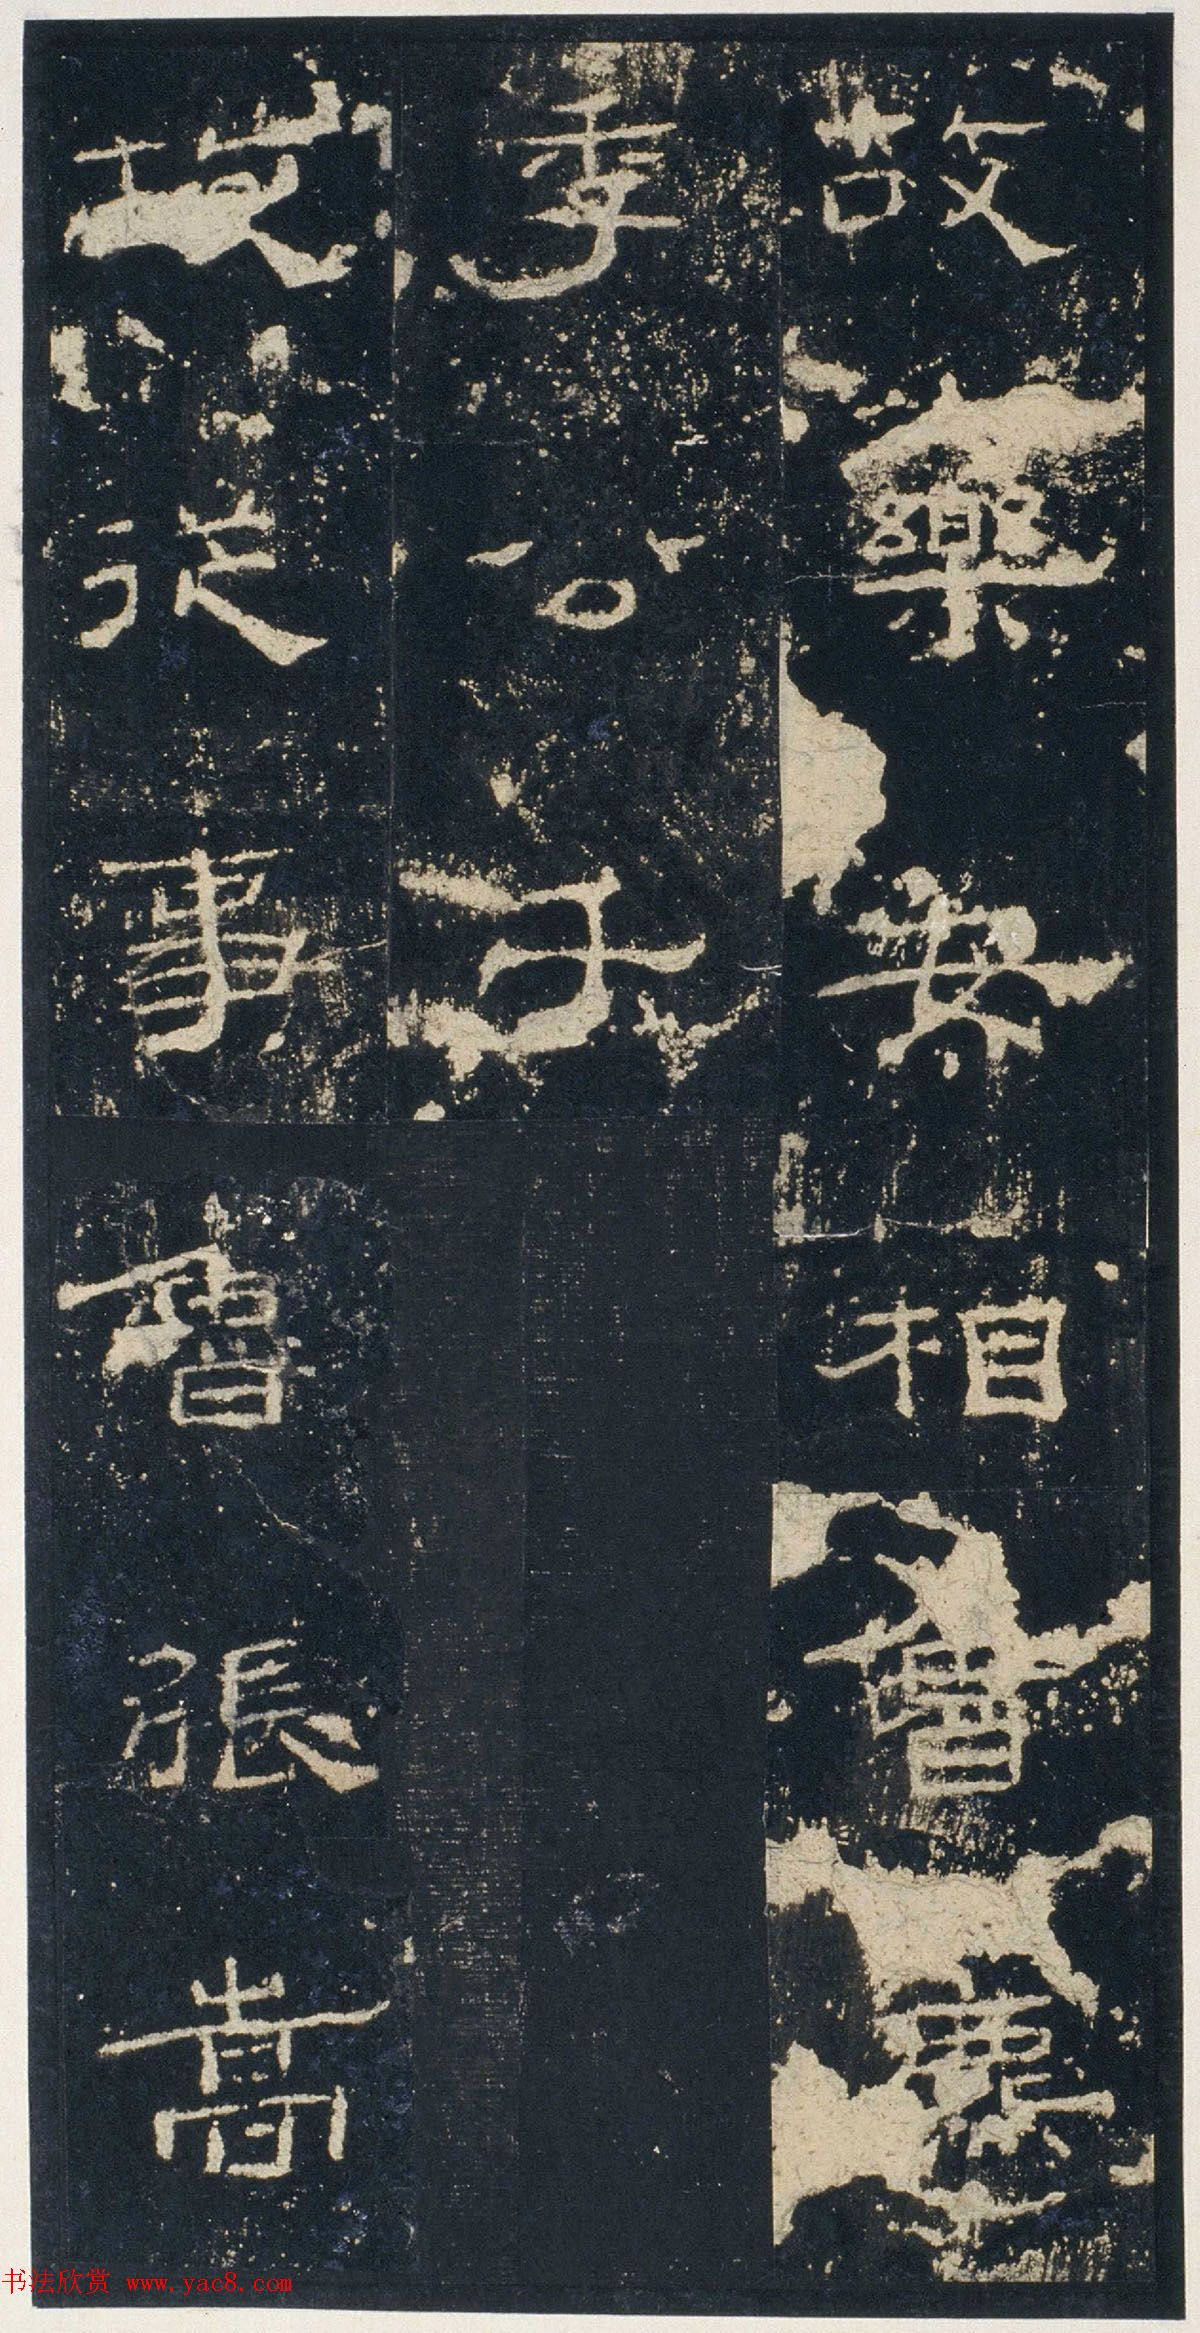 故樂安相魯麃
季公千
故從事魯張嵩
书法欣赏 www.yac8.com